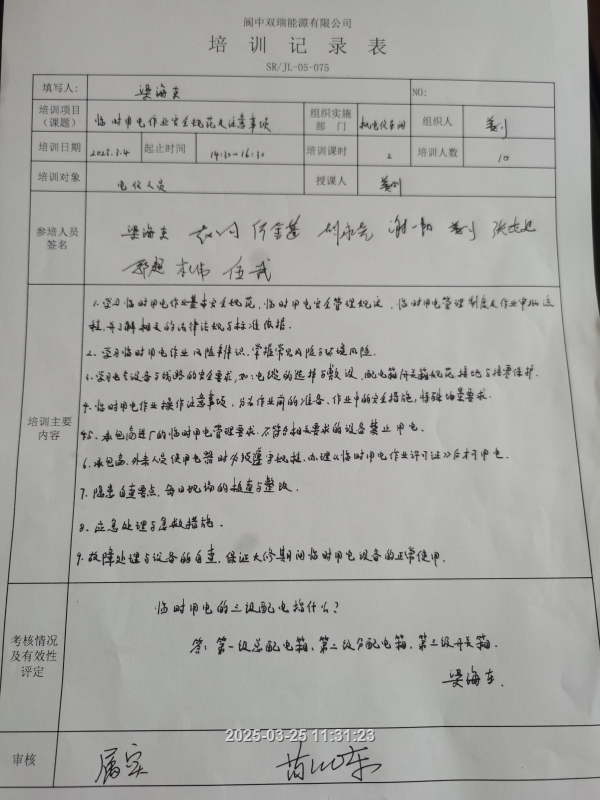 阆中双瑞能源有限公司
培训记录表
SR/JL-05-075
填写人: 梁海东 NO:
培训项目(课题) 临时用电作业安全规范及注意事项 组织实施部门 机电仪车间 组织人
培训日期 2025.3.4 起止时间 14:30-16:30 培训课时 2 培训人数 10
培训对象 电仪人员 授课人
参培人员签名 梁海东
伍武
培训主要内容
1.学习临时用电作业基本安全规范,临时用电安全管理规定,临时用电管理制度及作业审批流
程,并了解相关的法律法规与标准依据.
2.学习临时用电作业风险辨识,掌握常见风险与环境风险.
3.学习电气设备与线路的安全要求,如:电缆的选择与敷设,配电箱/开关箱规范接地与接零保护.
4.临时用电作业操作注意事项,分为作业前的准备、作业中的安全措施,特殊场景要求.
5.承包商进厂的临时用电管理要求.不符合相关要求的设备禁止用电.
6.承包商、外来人员使用电器时必须遵守规程.办理《临时用电作业许可证》后才可用电.
7.隐患自查要点,每日现场的检查与整改.
8.应急处理与急救措施.
9.故障处理与设备的自查,保证大修期间临时用电设备的正常使用.
考核情况及有效性评定
临时用电的三级配电指什么?
答:第一级总配电箱、第二级分配电箱、第三级开关箱.
梁海东.
2025-03-25 11:31:23
审核 属实